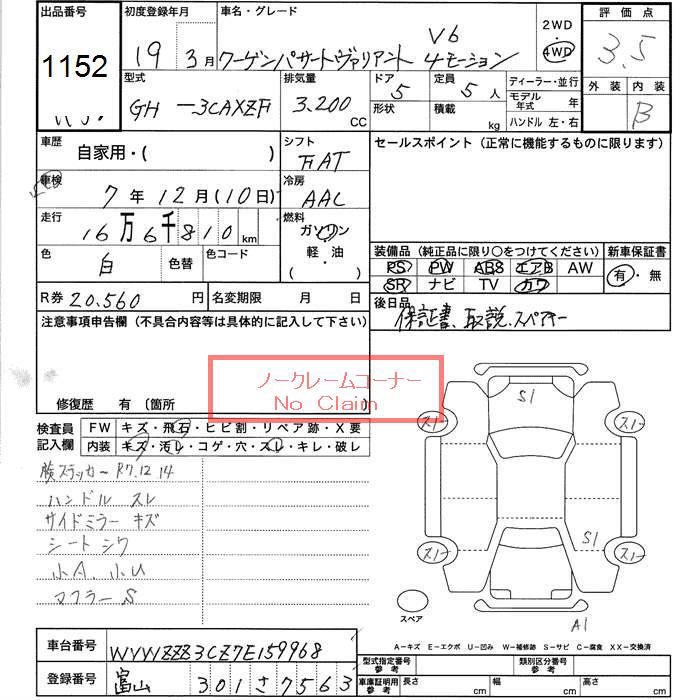 出品番号 初度登録年月 車名・グレード 2WD 4WD 評価点
1152 19 3月 ワーゲンパサートヴァリアント V6 4モーション 3.5
外装 内装 B
型式 GH-3CAXZF 排気量 3.200 CC ドア 5 定員 5人 ディーラー・並行
形状 積載 kg モデル年式 年
ハンドル 左・右
車歴 自家用・( ) シフト FAT セールスポイント (正常に機能するものに限ります)
車検 7年 12月(10日) 冷房 AAC
走行 16万6千810km 燃料 ガソリン 軽・油 ( )
色 白 色替 色コード
装備品 (純正品に限り○をつけてください) 新車保証書
PS PW ABS エアB AW 有・無
SR ナビ TV カワ
R券 20.560円 名変期限 月 日 後日品
保証書、取説、スペアキー
注意事項申告欄 (不具合内容等は具体的に記入して下さい)
ノークレームコーナー
No Claim
修復歴 有 〔箇所
検査員記入欄 FW キズ・飛石・ヒビ割・リペア跡・X要
内装 キズ・汚レ・コゲ・穴・スレ・キレ・破レ
検ステッカー R7.12.14
ハンドル スレ
サイドミラー キズ
シート シワ
小A、小U
マフラー S
S1
スノー スノー
S1
スノー スノー
スペア
A1
A-キズ E-エクボ U-凹み W-補修跡 S-サビ C-腐食 XX-交換済
車台番号 WVWZZZ3CZ7E159968
型式指定番号 参考 類別区分番号 参考
登録番号 富山 301 さ 7563
車庫証明用 参考 長さ cm 幅 cm 高さ cm